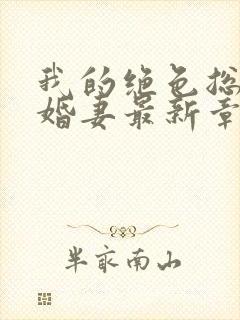 我的绝色总
婚妻最新章
半亩南山